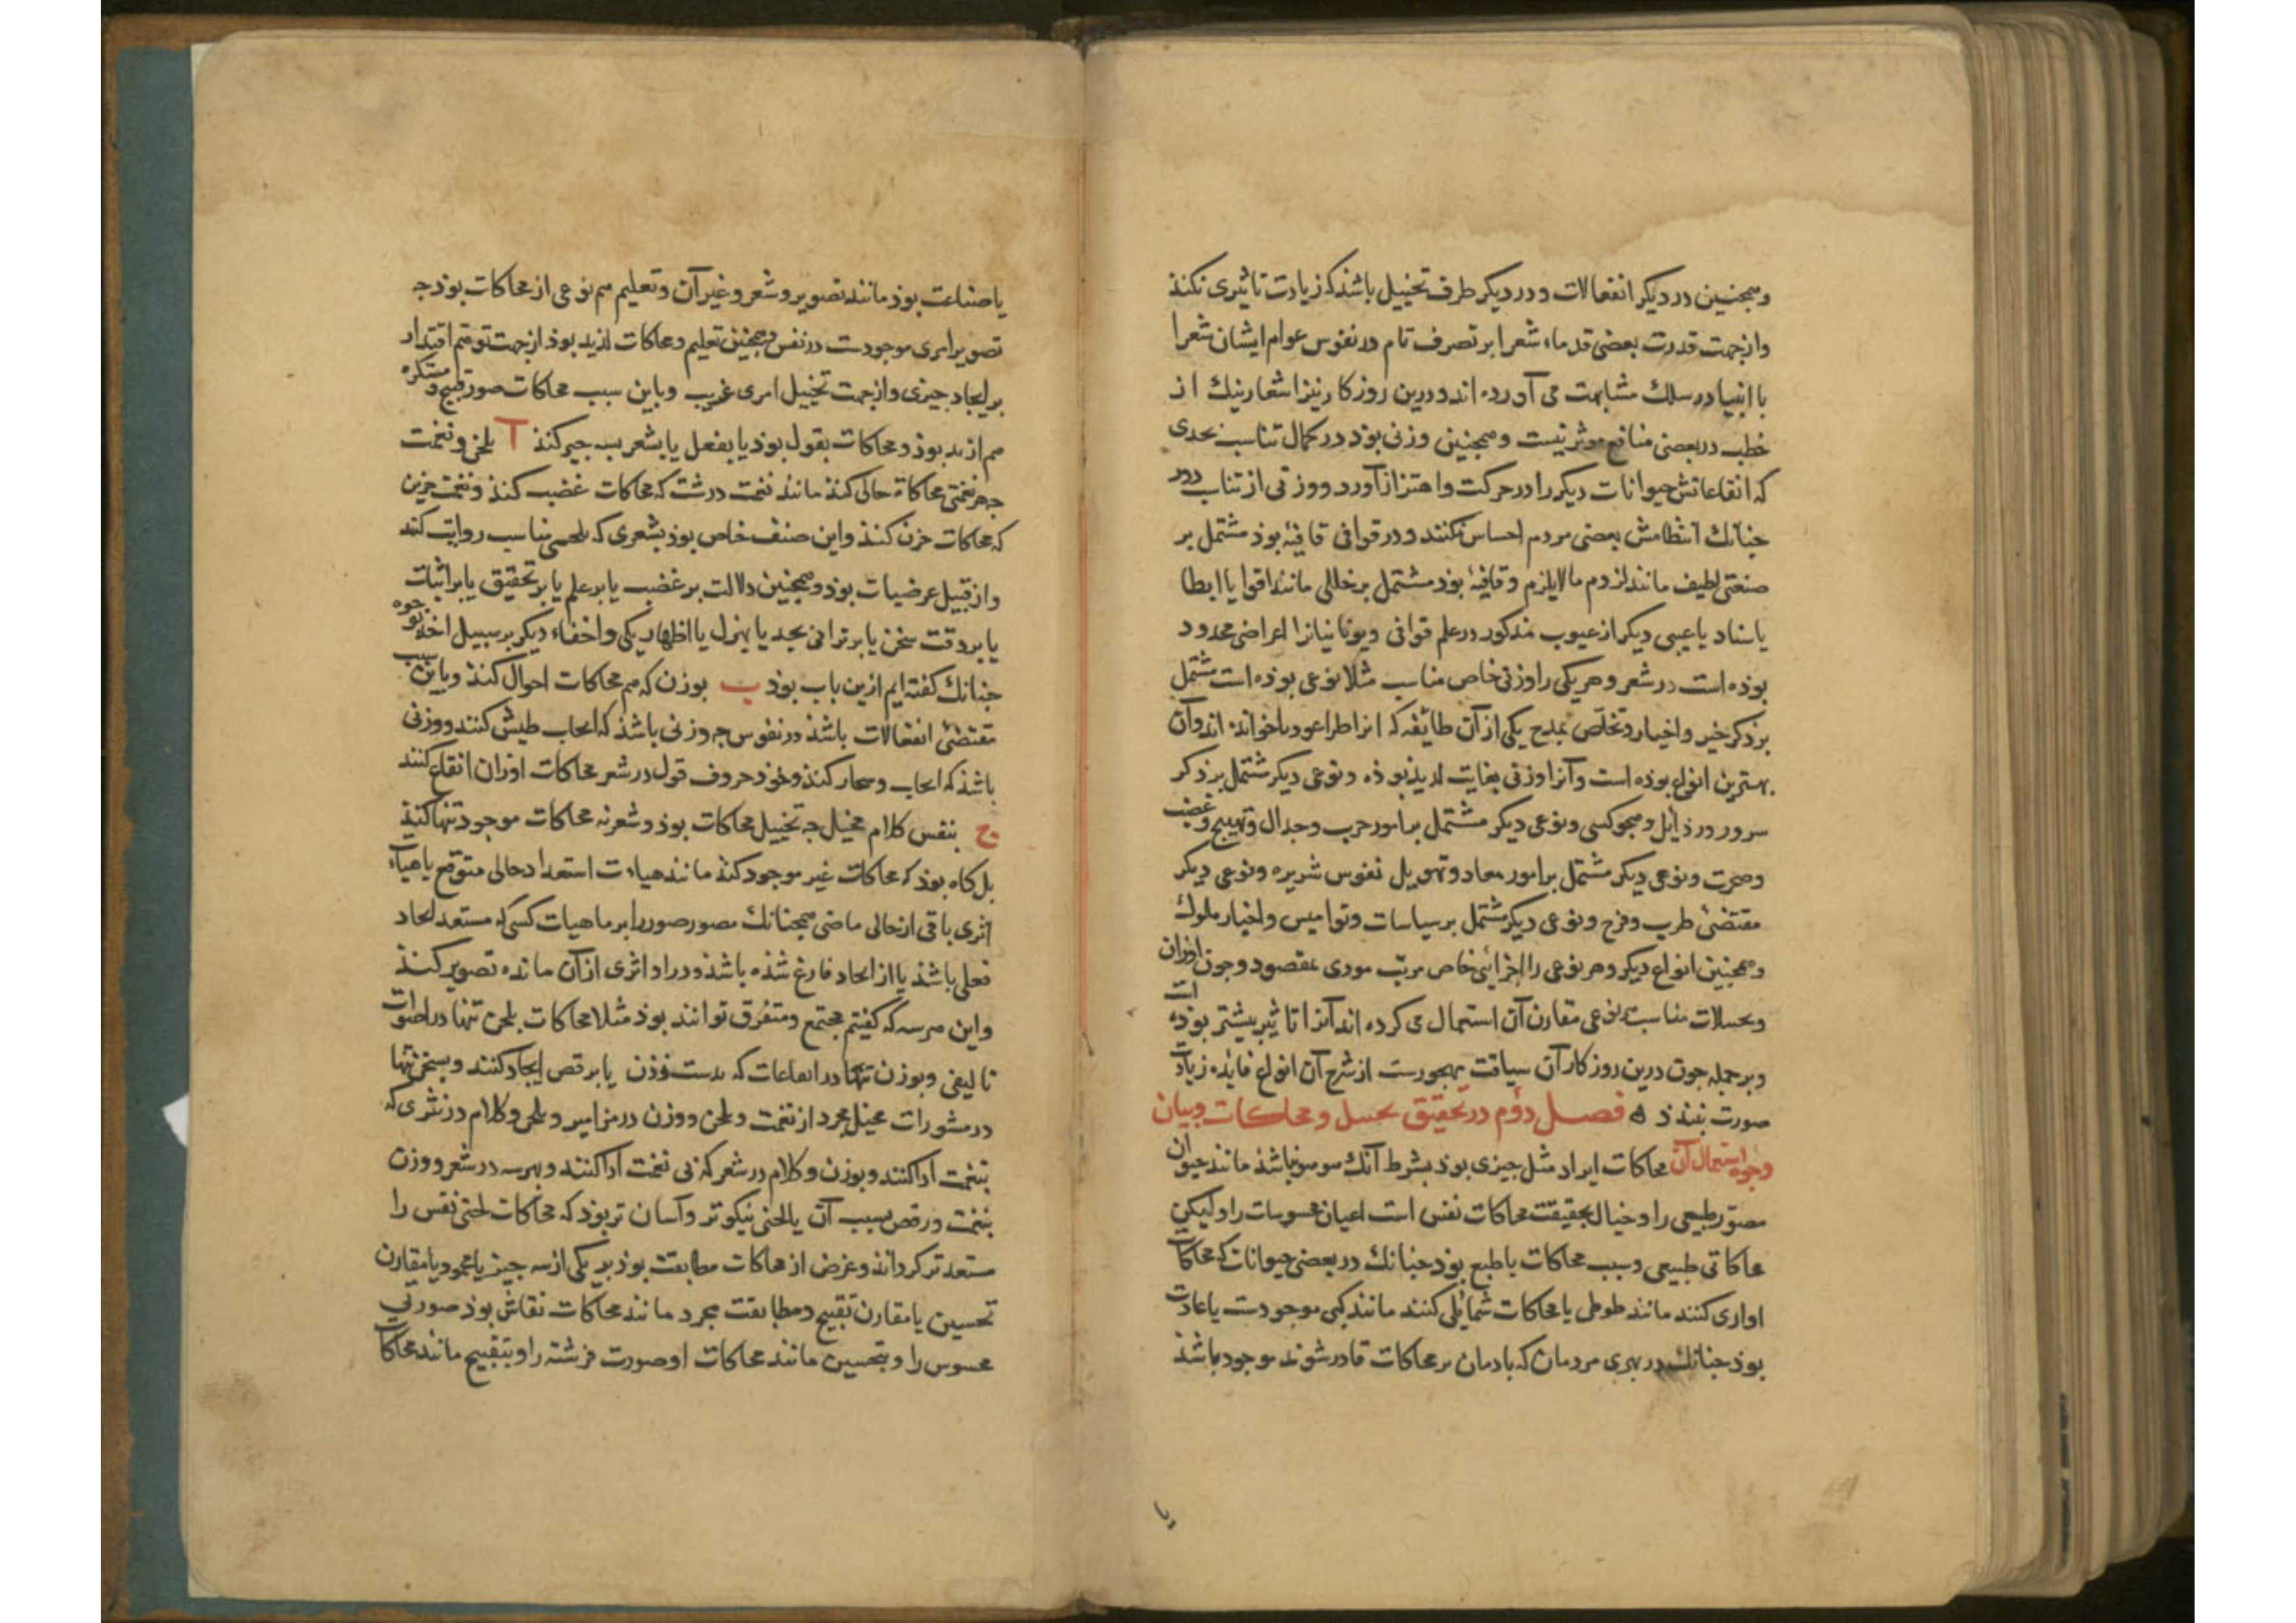 وهمجنین در دیکر انفعالات و در دیکر طرف تخییل باشذ که زیادت تاثیری نکنذ
و از جهت قدرت بعضی قدماء شعرا بر تصرف تام در نفوس عوام ایشان شعرا
با انبیا در سلک مشابهت می آورده اند و درین روزکار نیز اشعار نیک از
خطب در بعضی منافع موثرتیست وهمجنین وزنی بوذ در کمال تناسب بحدی
که ایقاعاتش حیوانات دیکر را در حرکت و اهتزاز آورد و وزنی از تناسب دور
جنانک انتظامش بعضی مردم احساس نکنند و در قوافی قافیهٔ بوذ مشتمل بر
صنعتی لطیف مانند لزوم مالایلزم و قافیهٔ بوذ مشتمل بر خللی مانند اقوا یا ایطا
یا سناد یا عیبی دیکر از عیوب مذکور در علم قوافی و یونانیانرا اغراضی محدود
بوذه است در شعر و هر یکی را وزنی خاص مناسب مثلا نوعی بوذه است مشتمل
بر ذکر خیر و اخیار و تخلص بمدح یکی از آن طائفه که انرا طراغوذیا خوانده اند و آن
بهترین انواع بوذه است و آنرا وزنی بغایت لذیذ بوذه و نوعی دیکر مشتمل بر ذکر
سرور و رذایل و هجو کسی و نوعی دیکر مشتمل بر امور حرب و جدال و تهییج و غضب
وضجرت و نوعی دیکر مشتمل بر امور معاد و تهویل نفوس شریره و نوعی دیکر
مقتضی طرب و فرح و نوعی دیکر مشتمل بر سیاسات و نوامیس و اخبار ملوک
و همجنین انواع دیکر و هر نوعی را اجزائی خاص مرتب مودی بمقصود و جون اوزان
و تخییلات مناسب هر نوعی مقارن آن استعمال می کرده اند آنرا تاثیر بیشتر بوذه است
و بر جمله جون درین روزکار آن سیاقت مهجورست از شرح آن انواع فایده زیادت
صورت نبندذ ه فصل دوم در تحقیق تخییل و محاکات و بیان
وجوه استعمال آن محاکات ایراد مثل جیزی بوذ بشرط آنک هو هو نباشذ مانند حیوان
مصور طبیعی را و خیال بحقیقت محاکات نفس است اعیان محسوسات را و لیکن
محاکاتی طبیعی و سبب محاکات یا طبع بوذ جنانک در بعضی حیوانات که محاکات
اوازی کنند مانند طوطی یا محاکات شمایلی کنند مانند کپی موجودست یا عادت
بوذ جنانک در بهری مردمان که بادمان بر محاکات قادر شوند موجود باشذ
یا
یا صناعت بوذ مانند تصویر و شعر و غیر آن و تعلیم هم نوعی از محاکات بوذ جه
تصویر امری موجودست در نفس و همجنین تعلیم و محاکات لذیذ بوذ از جهت توهم اقتدار
بر ایجاد جیزی و از جهت تخییل امری غریب و باین سبب محاکات صور قبیح و مستکره
هم لذیذ بوذ و محاکات بقول بوذ یا بفعل یا بشعر بسه جیز کنند آ بلحن و نغمت
جه هر نغمتی محاکاة حالی کند مانند نغمت درشت که محاکات غضب کنذ و نغمت حزین
که محاکات حزن کنذ و این صنف خاص بوذ بشعری که بلحنی مناسب روایت کنند
و از قبیل عرضیات بوذ و همجنین دلالت بر غضب یا بر علم یا بر تحقیق یا بر اثبات
یا بر دقت سخن یا بر توانی بجد یا بهزل یا اظهار یکی و اخفاء دیکر بر سبیل اخذ بوجوه
جنانک کفته ایم ازین باب بوذ ب بوزن که هم محاکات احوال کنذ و باین سبب
مقتضی انفعالات باشذ در نفوس جه وزنی باشذ که ایجاب طیش کنند و وزنی
باشذ که ایجاب وقار کنذ و خوذ حروف قول در شعر محاکات اوزان ایقاع کنند
ج بنفس کلام مخیل جه تخییل محاکات بوذ و شعر نه محاکات موجود تنها کنذ
بل کاه بوذ که محاکات غیر موجود کنذ مانند هیاءت استعداد حالی متوقع یا هیاءت
اثری باقی از حالی ماضی همجنانک مصور صور را بر ماهیات کسی که مستعد ایجاد
فعلی باشذ یا از ایجاد فارغ شذه باشذ و در او اثری از آن مانده تصویر کنذ
و این هر سه که کفتیم مجتمع و متفرق توانند بوذ مثلا محاکات بلحن تنها در اصوات
تالیفی و بوزن تنها در ایقاعات که بدست زذن یا برقص ایجاد کنند و بسخن تنها
در منثورات مخیل مجرد از نغمت و بلحن و وزن در مزامیر و بلحن و کلام در نثری که
بنغمت ادا کنند و بوزن و کلام در شعر که بی نغمت ادا کنند و بهر سه در شعر و وزن
بنغمت و رقص بسبب آن با لحنی نیکوتر و آسان تر بوذ که محاکات لحنی نفس را
مستعد تر کرداند و غرض از محاکات مطابقت بوذ بر یکی از سه جیز یا مجرد یا مقارن
تحسین یا مقارن تقبیح و مطابقت مجرد مانند محاکات نقاش بوذ صورتی
محسوس را و بتحسین مانند محاکات او صورت فرشته را و بتقبیح مانند محاکات